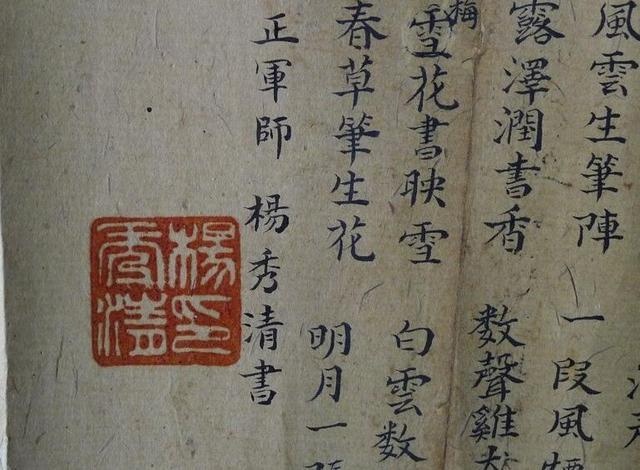 風雲生筆陣 一段風
露澤潤書香 数聲雞
梅
雪花書映雪 白雲数
春草筆生花 明月一
正軍師 楊秀清書
楊印
秀清